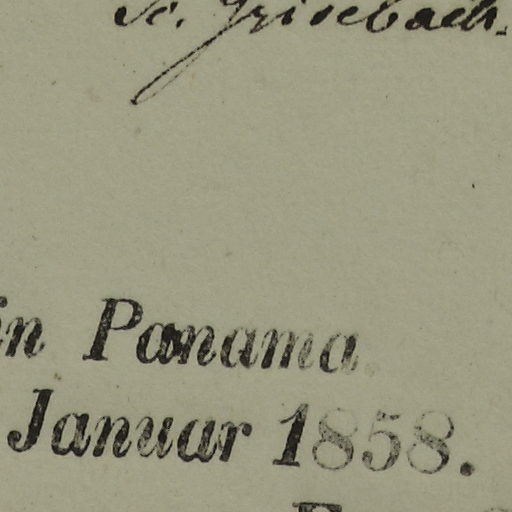 Sc. Grisebach.
in Panama.
Januar 1858.